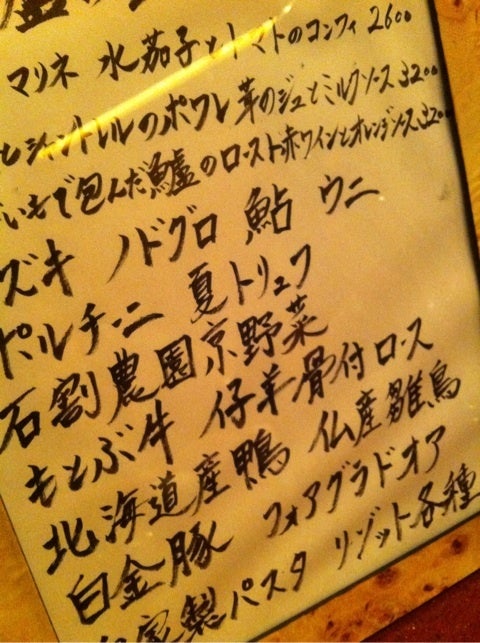 マリネ 水茄子とトマトのコンフィ 2600
とシャントレルのポワレ 茸のジュとミルクソース 3200
いもで包んだ鱸のロースト赤ワインとオレンジソース 3200
ズキ ノドグロ 鮎 ウニ
ポルチーニ 夏トリュフ
石割農園京野菜
もとぶ牛 仔羊骨付ロース
北海道産鴨 仏産雛鳥
白金豚 フォアグラドオア
家製パスタ リゾット各種